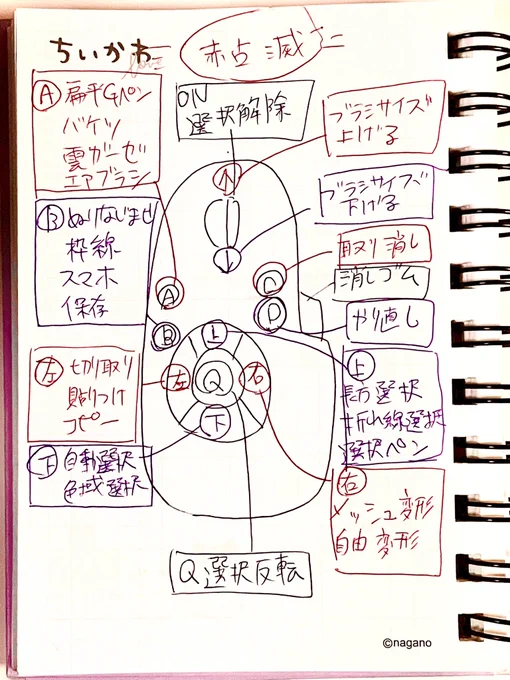 ちいかわ
赤点滅
ON
選択解除
ブラシサイズ
上げる
A 扁平Gペン
バケツ
雲ガーゼ
エアブラシ
ブラシサイズ
下げる
B ぬけなじませ
枠線
スマホ
保存
取り消し
消しゴム
やり直し
↑
↓
A
B
C
D
上
左
Q
右
下
左 切り取り
貼りつけ
コピー
上
長方選択
折れ線選択
選択ペン
下 自動選択
色域選択
右
メッシュ変形
自由変形
Q 選択反転
©nagano